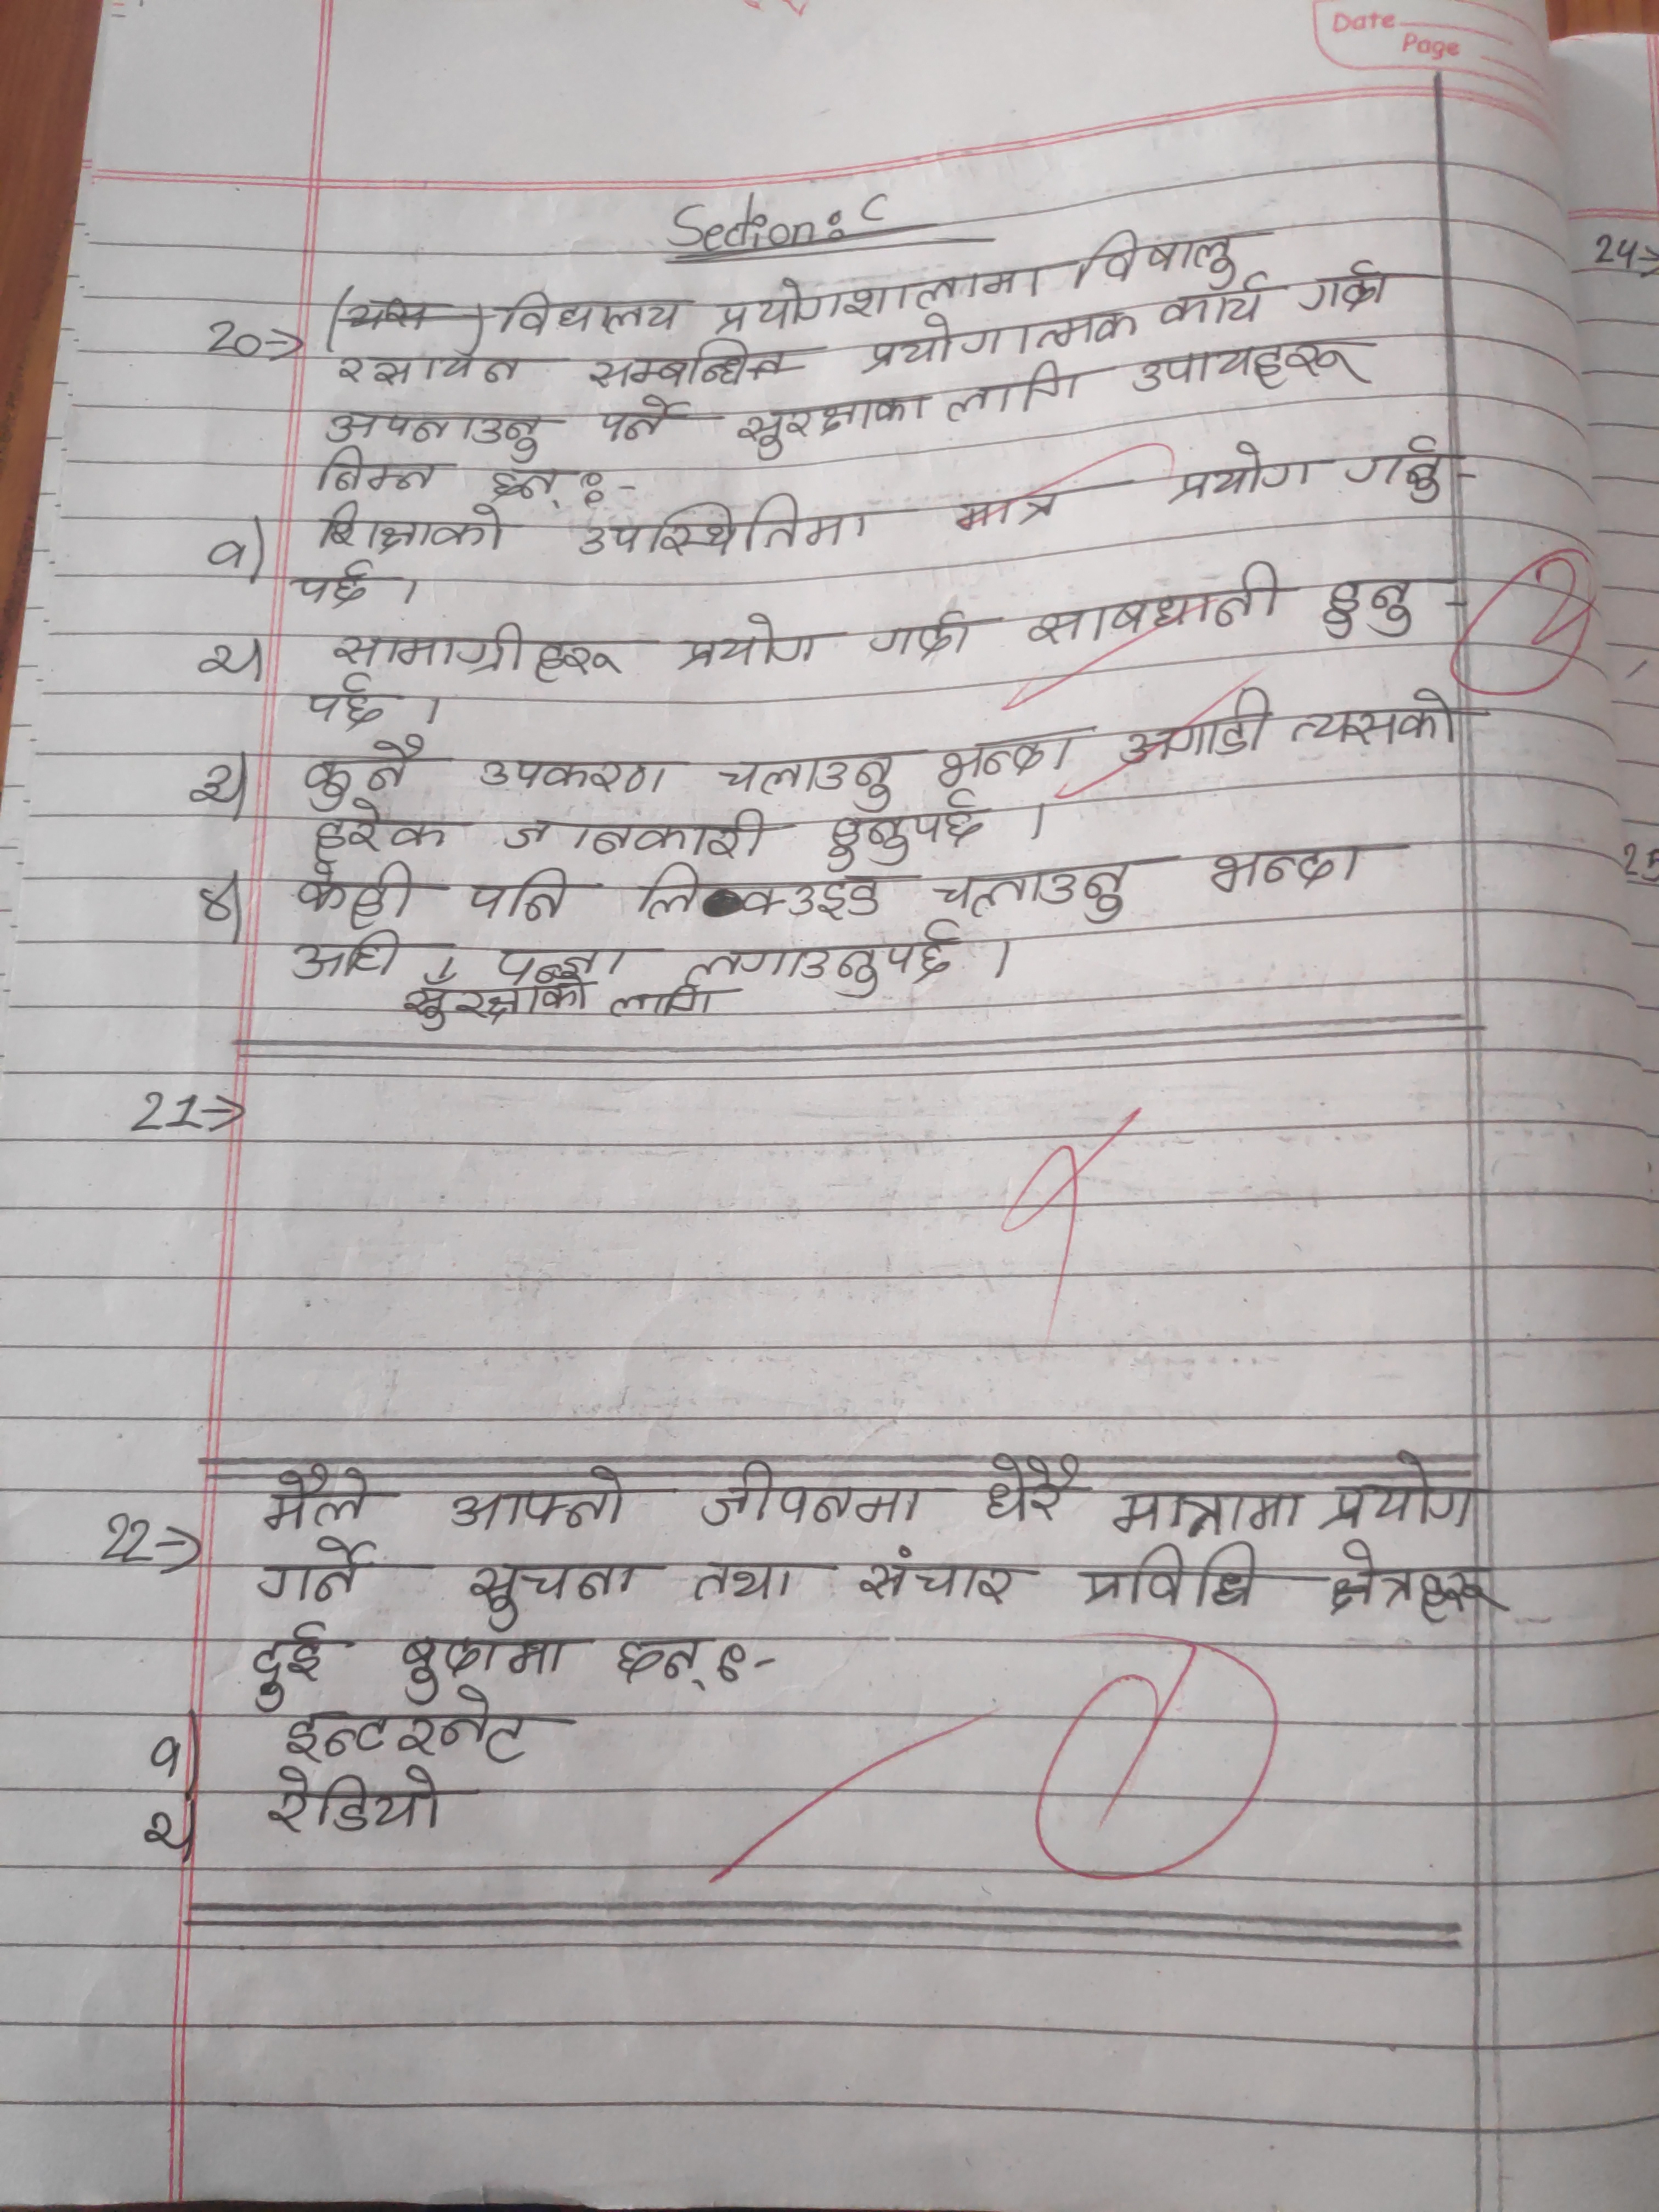 Date
Page
Section: C
20⇒ (यस) विद्यालय प्रयोगशालामा विषालु
रसायन सम्बन्धित प्रयोगात्मक कार्य गर्दा
अपनाउनु पर्ने सुरक्षाका लागि उपायहरू
निम्न छन् :-
१) शिक्षाको उपस्थितिमा मात्र प्रयोग गर्नु-
पर्छ ।
२) सामाग्रीहरू प्रयोग गर्दा साबधानी हुनु-
पर्छ ।
३) कुनै उपकरण चलाउनु भन्दा अगाडी त्यसको
हरेक जानकारी हुनुपर्छ ।
४) केही पनि लिक्उइड चलाउनु भन्दा
अघि पन्जा लगाउनुपर्छ ।
सुरक्षाको लागि
21⇒
22⇒ मैले आफ्नो जीवनमा धेरै मात्रामा प्रयोग
गर्ने सुचना तथा संचार प्रविधि क्षेत्रहरू
दुई बुदामा छन् :-
१) इन्टरनेट
२) रेडियो
24⇒
25
2
1